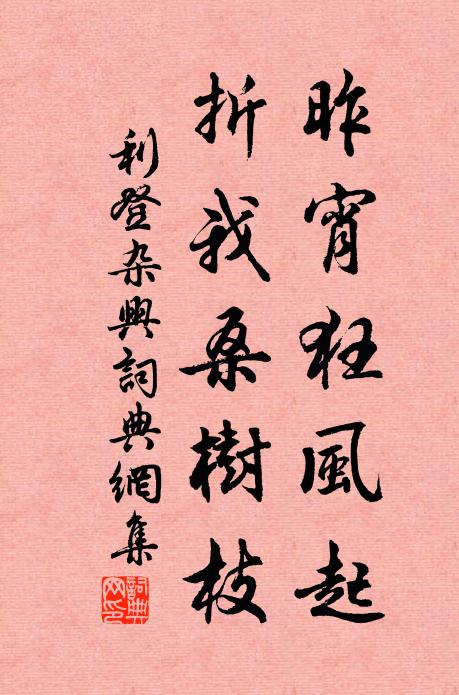 昨宵狂風起
折我桑樹枝
利登杂興詞典網集
詞典网印